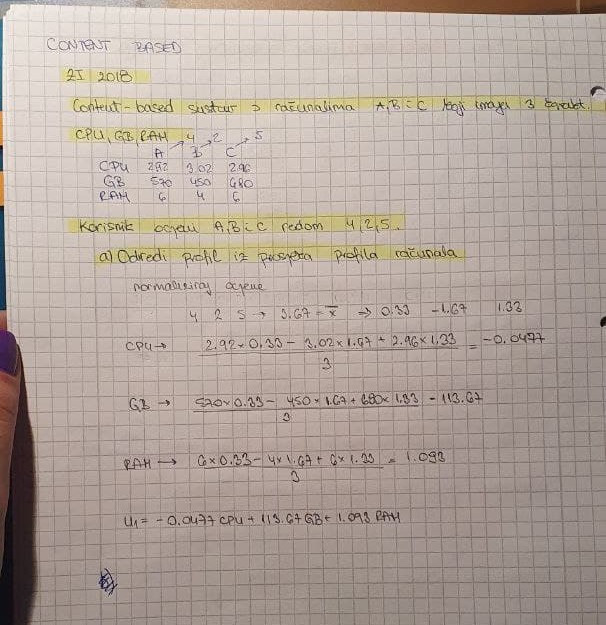 CONTENT BASED
ZI 2018
Content-based sustav s računalima A, B i C koji imaju 3 značajke.
CPU, GB, RAM 4 2 5
A B C
CPU 2.92 3.02 2.96
GB 570 450 680
RAM 6 4 6
Korisnik ocjenu A, B i C redom 4, 2, 5.
a) Odredi profil iz prosjeka profila računala
normaliziraj ocjene
4 2 5 → 3.67 = x̄ ⇒ 0.33 -1.67 1.33
CPU → 2.92 × 0.33 - 3.02 × 1.67 + 2.96 × 1.33 / 3 = -0.0477
GB → 570 × 0.33 - 450 × 1.67 + 680 × 1.33 / 3 = 113.67
RAM → 6 × 0.33 - 4 × 1.67 + 6 × 1.33 / 3 = 1.093
U₁ = -0.0477 CPU + 113.67 GB + 1.093 RAM